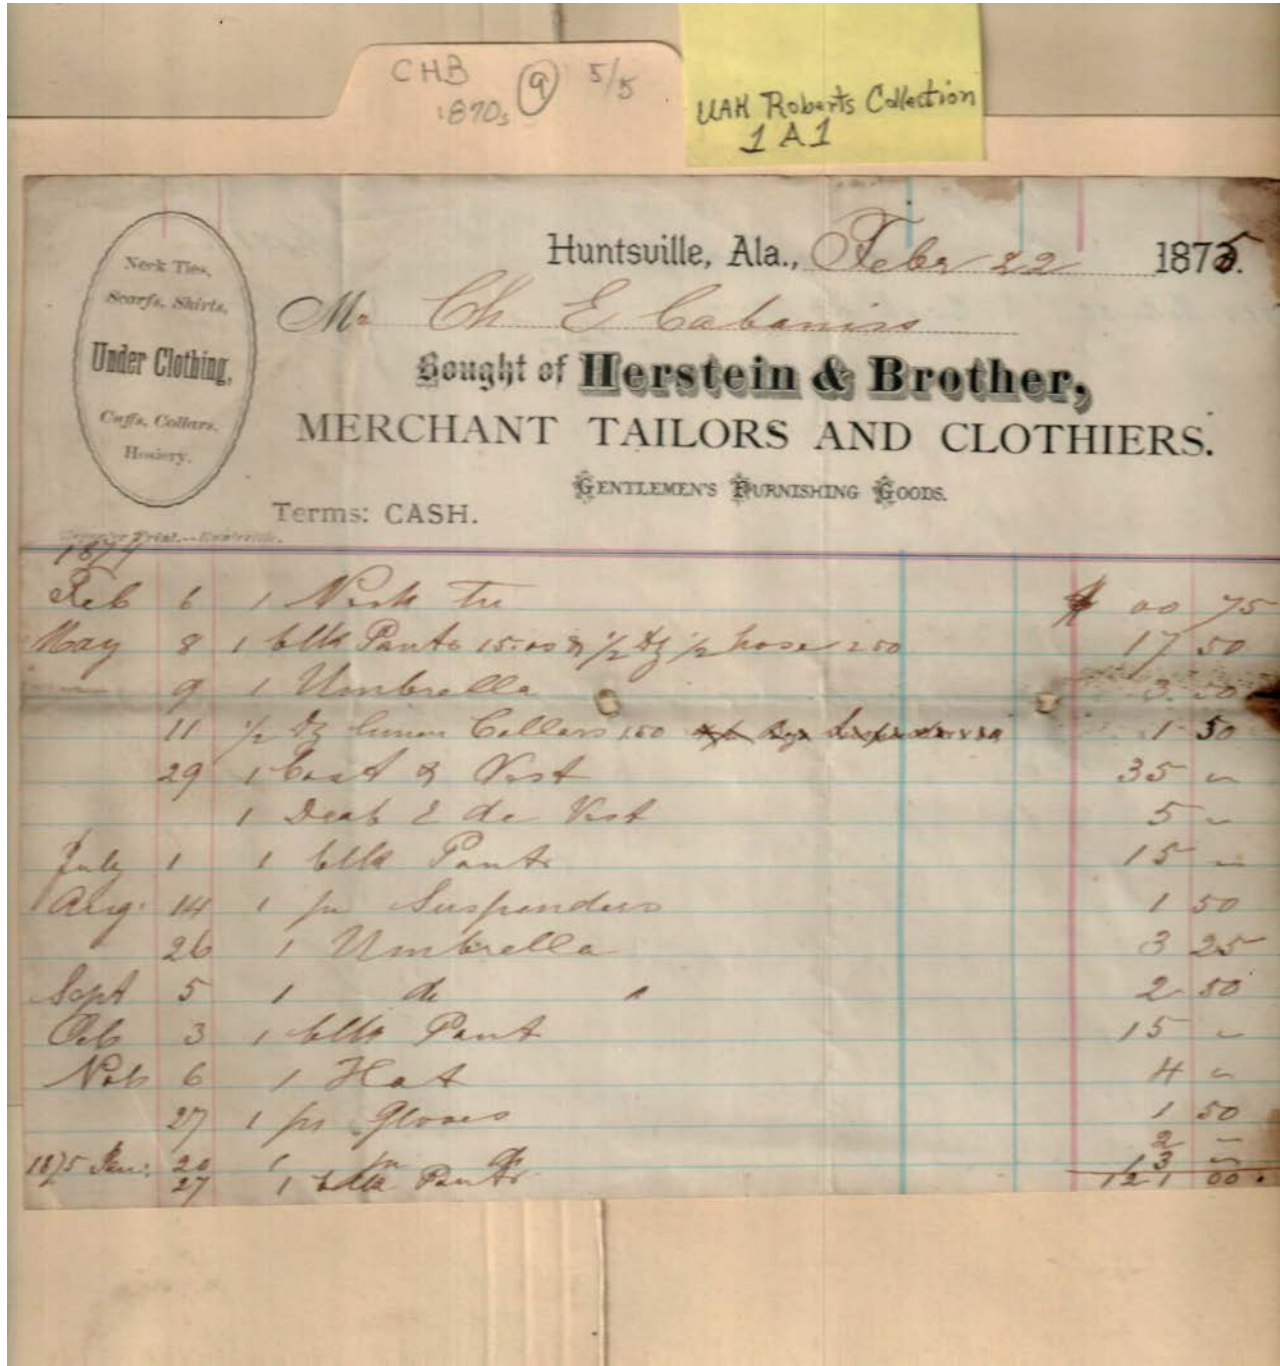 CHB 9 5/5
1870s
UAH Roberts Collection
1 A 1
Neck Ties,
Scarfs, Shirts,
Under Clothing,
Cuffs, Collars,
Hosiery.
Huntsville, Ala., Febr 22 1875.
Mr Ch E Cabaniss
Bought of Herstein & Brother,
MERCHANT TAILORS AND CLOTHIERS.
GENTLEMEN'S FURNISHING GOODS.
Terms: CASH.
Print.--Huntsville.
1874
Feb 6 1 Neck Tie $ 00 75
May 8 1 blk Pants 15.00 & 1/2 Dz 1/2 hose 2 50 17 50
9 1 Umbrella 3 50
11 1/2 Dz Linnen Collars 1.50 1 50
29 1 Coat & Vest 35 ~
1 Vest 5 ~
July 1 1 blk Pants 15 ~
Aug. 14 1 pr Suspenders 1 50
26 1 Umbrella 3 25
Sept 5 1 do " 2 50
Otb 3 1 blk Pant 15 ~
Nob 6 1 Hat 4 ~
27 1 pr Gloves 1 50
1875 Jan. 20 1 pr do 2 ~
27 1 blk Pants 13 ~
121 00.